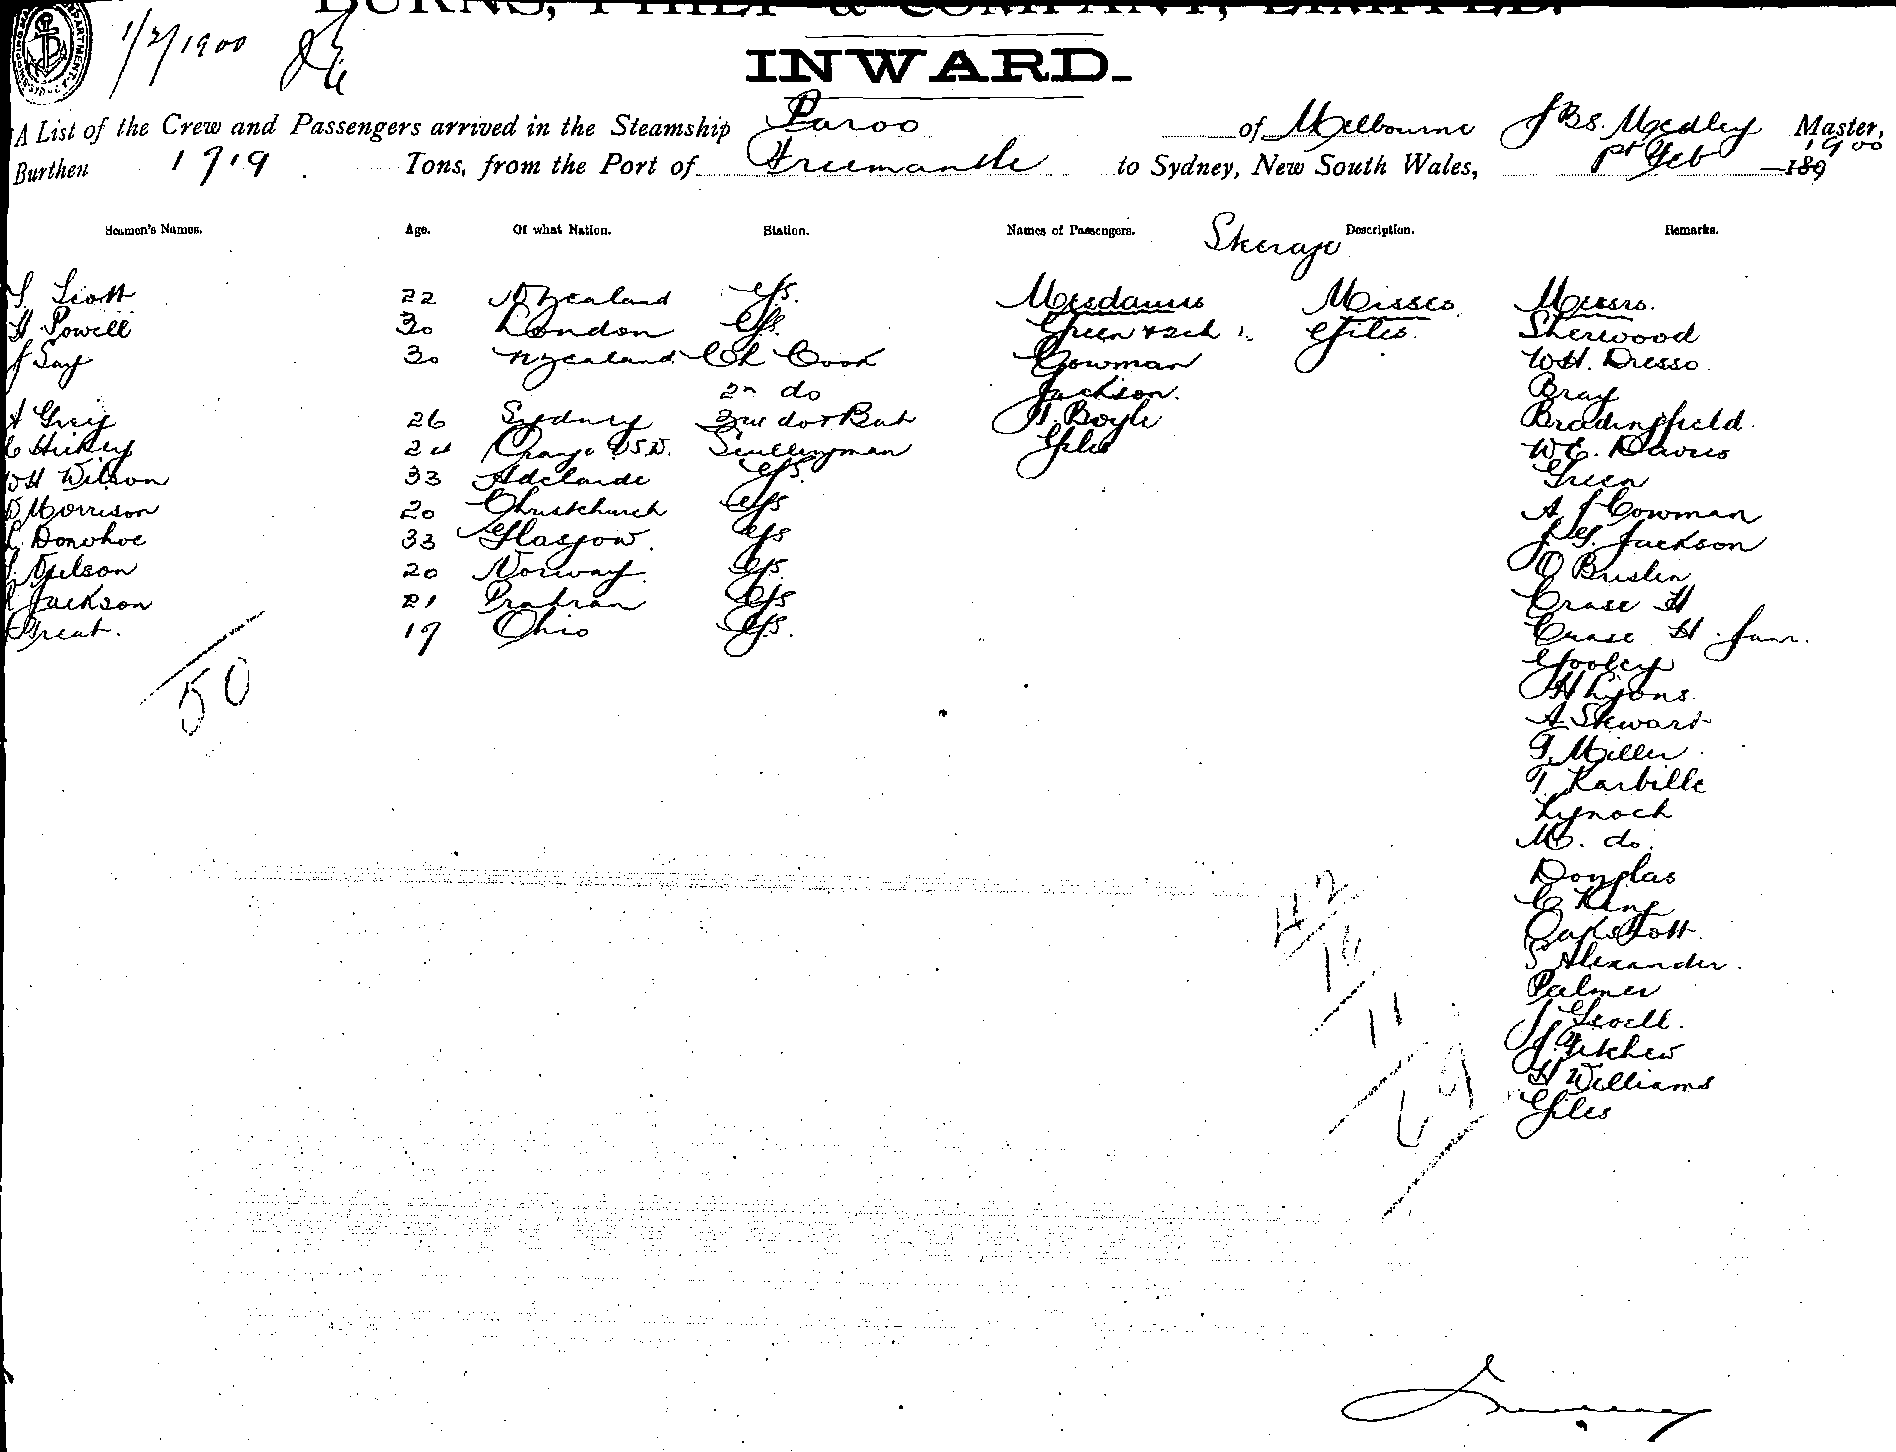 BURNS, PHILP & COMPANY, LIMITED.
1/2/1900
INWARD.
A List of the Crew and Passengers arrived in the Steamship Paroo of Melbourne Jas. Medley Master,
Burthen 1719 Tons, from the Port of Freemantle to Sydney, New South Wales, 1st Feb 189 1900
Seamen's Names. Age. Of what Nation. Station. Names of Passengers. Steerage Description. Remarks.
S. Scott 22 N Zealand G/S. Mesdames Misses Messrs.
H Powell 30 London G/S. Green + 2ch Giles. Sherwood
J Say 30 N Zealand Ch Cook Cowman W.H. Dresso
2n do Jackson. Bray
A Grey 26 Sydney 3rd do + But H. Boyle Bradingfield.
C Hickey 24 Orange Scullengman Giles W.E. Davies
WH Wilson 33 Adelaide G/S. Green
D Morrison 20 Christchurch G/S A J Cowman
Donohoe 33 Glasgow. G/S J. G. Jackson
Nelson 20 Norway. G/S. O Brislin
Jackson 21 Prahran G/S Crase H
Treat. 19 Ohio G/S. Crase H. Junr.
50
Gooley
H Lyons
A. Stewart
T. Miller
T. Karbille
Lynoch
M. do.
Douglas
C King
Oakshott
S Alexander.
Palmer
J. Sewell.
J. Pitchew
H Williams
Giles
42
16
11
69